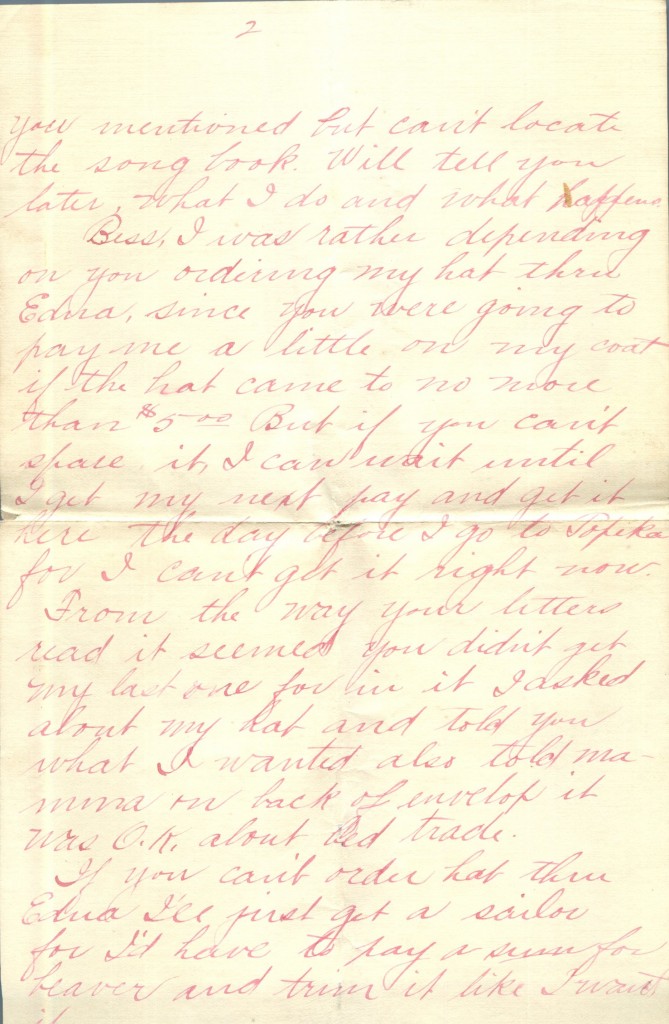 2
you mentioned but can't locate
the song book. Will tell you
later, what I do and what happens.
Bess, I was rather depending
on you ordering my hat thru
Edna, since you were going to
pay me a little on my coat
if the hat came to no more
than $5.00 But if you can't
spare it, I can wait until
I get my next pay and get it
here the day before I go to Topeka
for I can't get it right now.
From the way your letters
read it seemed you didn't get
my last one for in it I asked
about my hat and told you
what I wanted also told ma-
mma on back of envelop it
was O.K. about bed trade.
If you can't order hat thru
Edna I'll just get a sailor
for I'd have to pay a sum for
beaver and trim it like I want
it